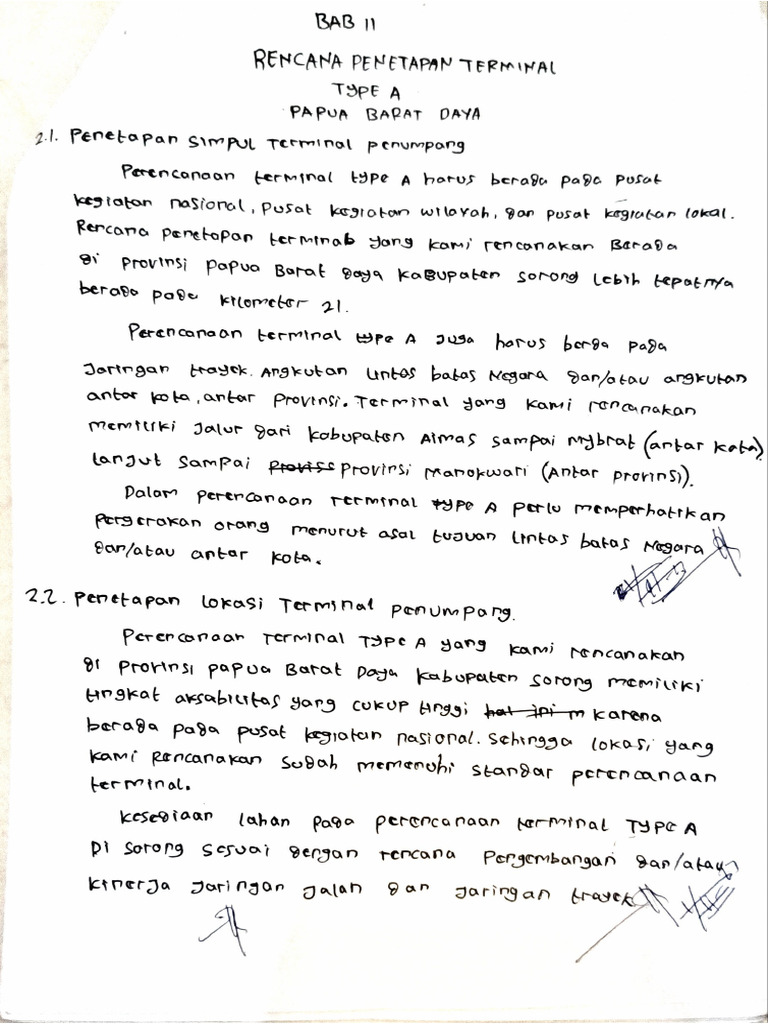 BAB II
RENCANA PENETAPAN TERMINAL
TYPE A
PAPUA BARAT DAYA
2.1. Penetapan SIMPUL Terminal penumpang
Perencanaan terminal type A harus berada pada pusat
kegiatan nasional, pusat kegiatan wilayah, dan pusat kegiatan lokal.
Rencana penetapan terminab yang kami rencanakan Berada
di provinsi papua Barat daya kabupaten sorong lebih tepatnya
berada pada kilometer 21.
Perencanaan terminal type A juga harus berda pada
Jaringan trayek. Angkutan lintas batas Negara dan/atau angkutan
antar kota, antar provinsi. Terminal yang kami rencanakan
memiliki jalur dari kabupaten Aimas sampai Mybrat (antar kota).
lanjut sampai proviss provinsi manokwari (Antar provinsi).
Dalam perencanaan Terminal type A perlu memperhatikan
pergerakan orang menurut asal tujuan lintas batas Negara
dan/atau antar kota.
2.2. Penetapan Lokasi Terminal Penumpang.
Perencanaan Terminal TYPE A yang kami rencanakan
di provinsi papua Barat Daya kabupaten sorong memiliki
tingkat aksabilitas yang cukup tinggi hal ini m karena
berada pada pusat kegiatan nasional. sehingga lokasi yang
kami Rencanakan sudah memenuhi standar perencanaan
terminal.
kesediaan lahan pada perencanaan terminal TYPE A
Di sorong sesuai dengan rencana pengembangan dan/atau
kinerja jaringan jalan dan jaringan trayek